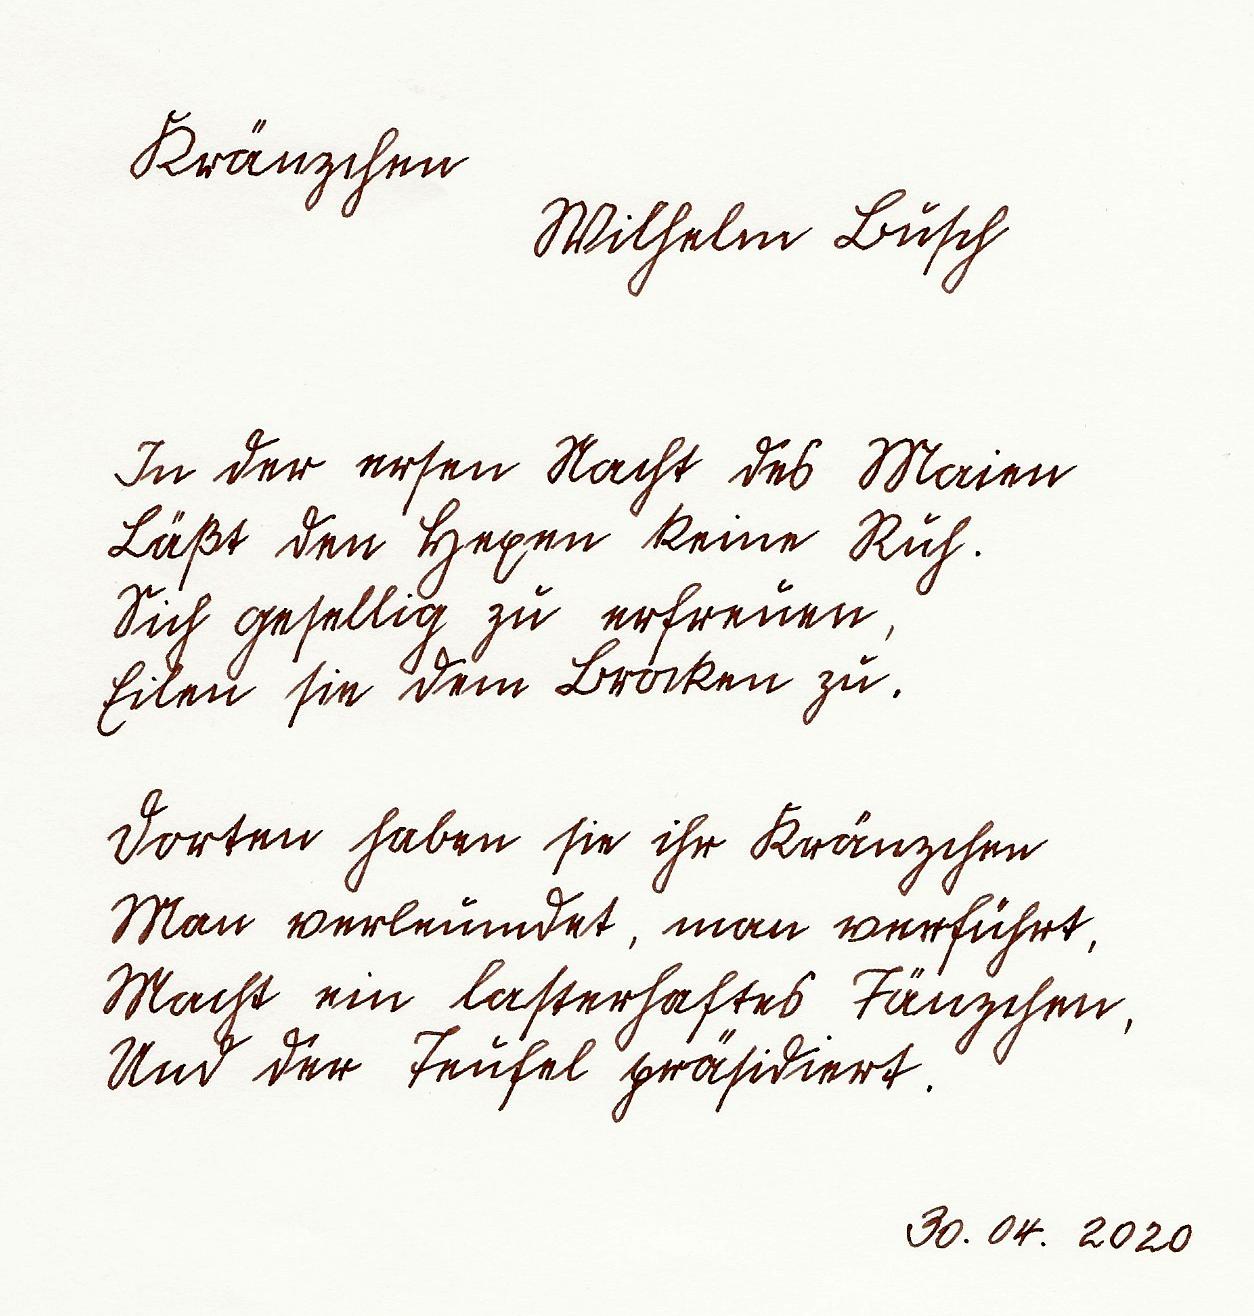 Kränzchen
Wilhelm Busch
In der ersen Nacht des Maien
Läßt den Hexen keine Ruh.
Sich gesellig zu erfreuen,
Eilen sie dem Brocken zu.
Dorten haben sie ihr Kränzchen
Man verleumdet, man verführt,
Macht ein lasterhaftes Tänzchen,
Und der Teufel präsidiert.
30. 04. 2020